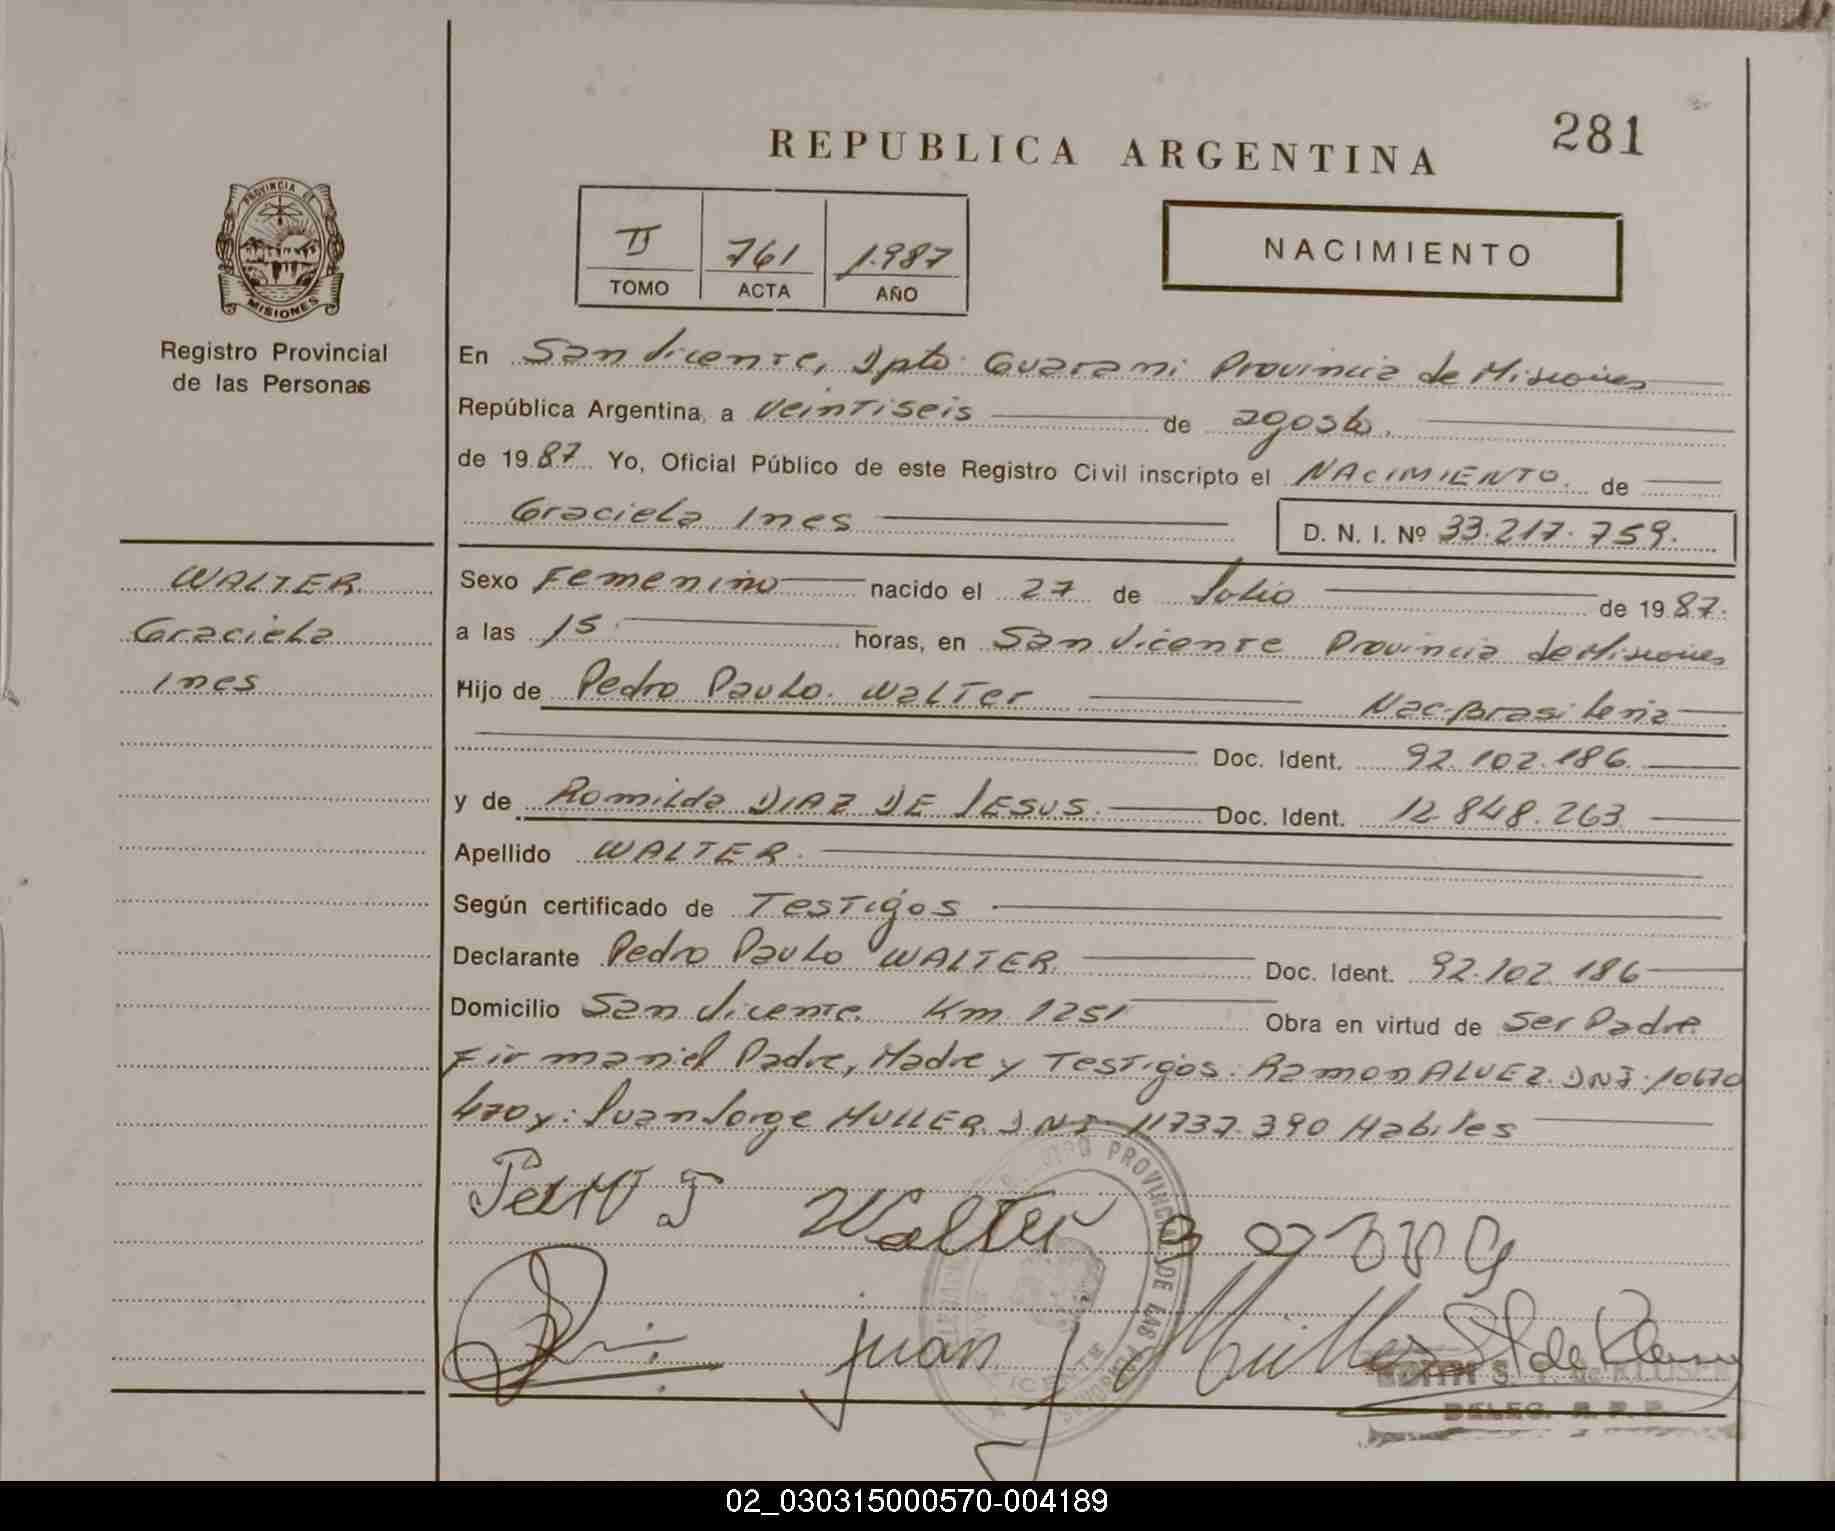 281
REPUBLICA ARGENTINA
PROVINCIA DE
MISIONES
II 761 1.987
TOMO ACTA AÑO
NACIMIENTO
Registro Provincial
de las Personas
En San Vicente, Dpto. Guarani Provincia de Misiones
República Argentina, a veintiseis de agosto.
de 19 87 Yo, Oficial Público de este Registro Civil inscripto el NACIMIENTO. de
Graciela Ines D. N. I. Nº 33.217.759.
WALTER
Graciela
Ines
Sexo Femenino nacido el 27 de Julio de 19 87.
a las 15 horas, en San Vicente Provincia de Misiones
Hijo de Pedro Paulo Walter Nac. Brasileria
Doc. Ident. 92.102.186.
y de Romilda DIAZ DE JESUS. Doc. Ident. 12.848.263
Apellido WALTER.
Según certificado de Testigos
Declarante Pedro Paulo WALTER Doc. Ident. 92.102.186
Domicilio San Vicente Km 1251 Obra en virtud de Ser Padre
Firman el Padre, Madre y Testigos. Ramon ALVEZ. DNI. 10670
470 y: Juan Jorge MULLER DNI 11737.390 Habiles
Walter
PROVINCIAL DE LAS PERSONAS
VICENTE
Juan J Müller
DELEG. R. P. P.
02_030315000570-004189